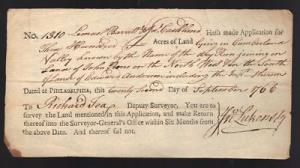 No. 1810 Samuel Barrett Hath made Application for
Three Hundred Acres of Land lying in Cumberland
Valley known by the Name of the Dry Run joining on
Lands of John on the North West on the South
of Land of Edward including the therein
Dated at PHILADELPHIA, this twenty Day of September 1766
To Richard Tea Deputy Surveyor, You are to
survey the Land mentioned in this Application, and make Return
thereof into the Surveyor-General's Office within Six Months from
the above Date. And thereof fail not.
Jno Lukens